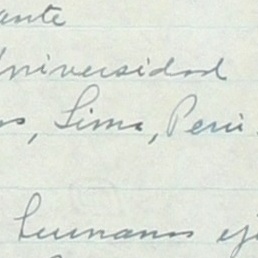 ante
Universidad
os, Lima, Perú
humanos eje